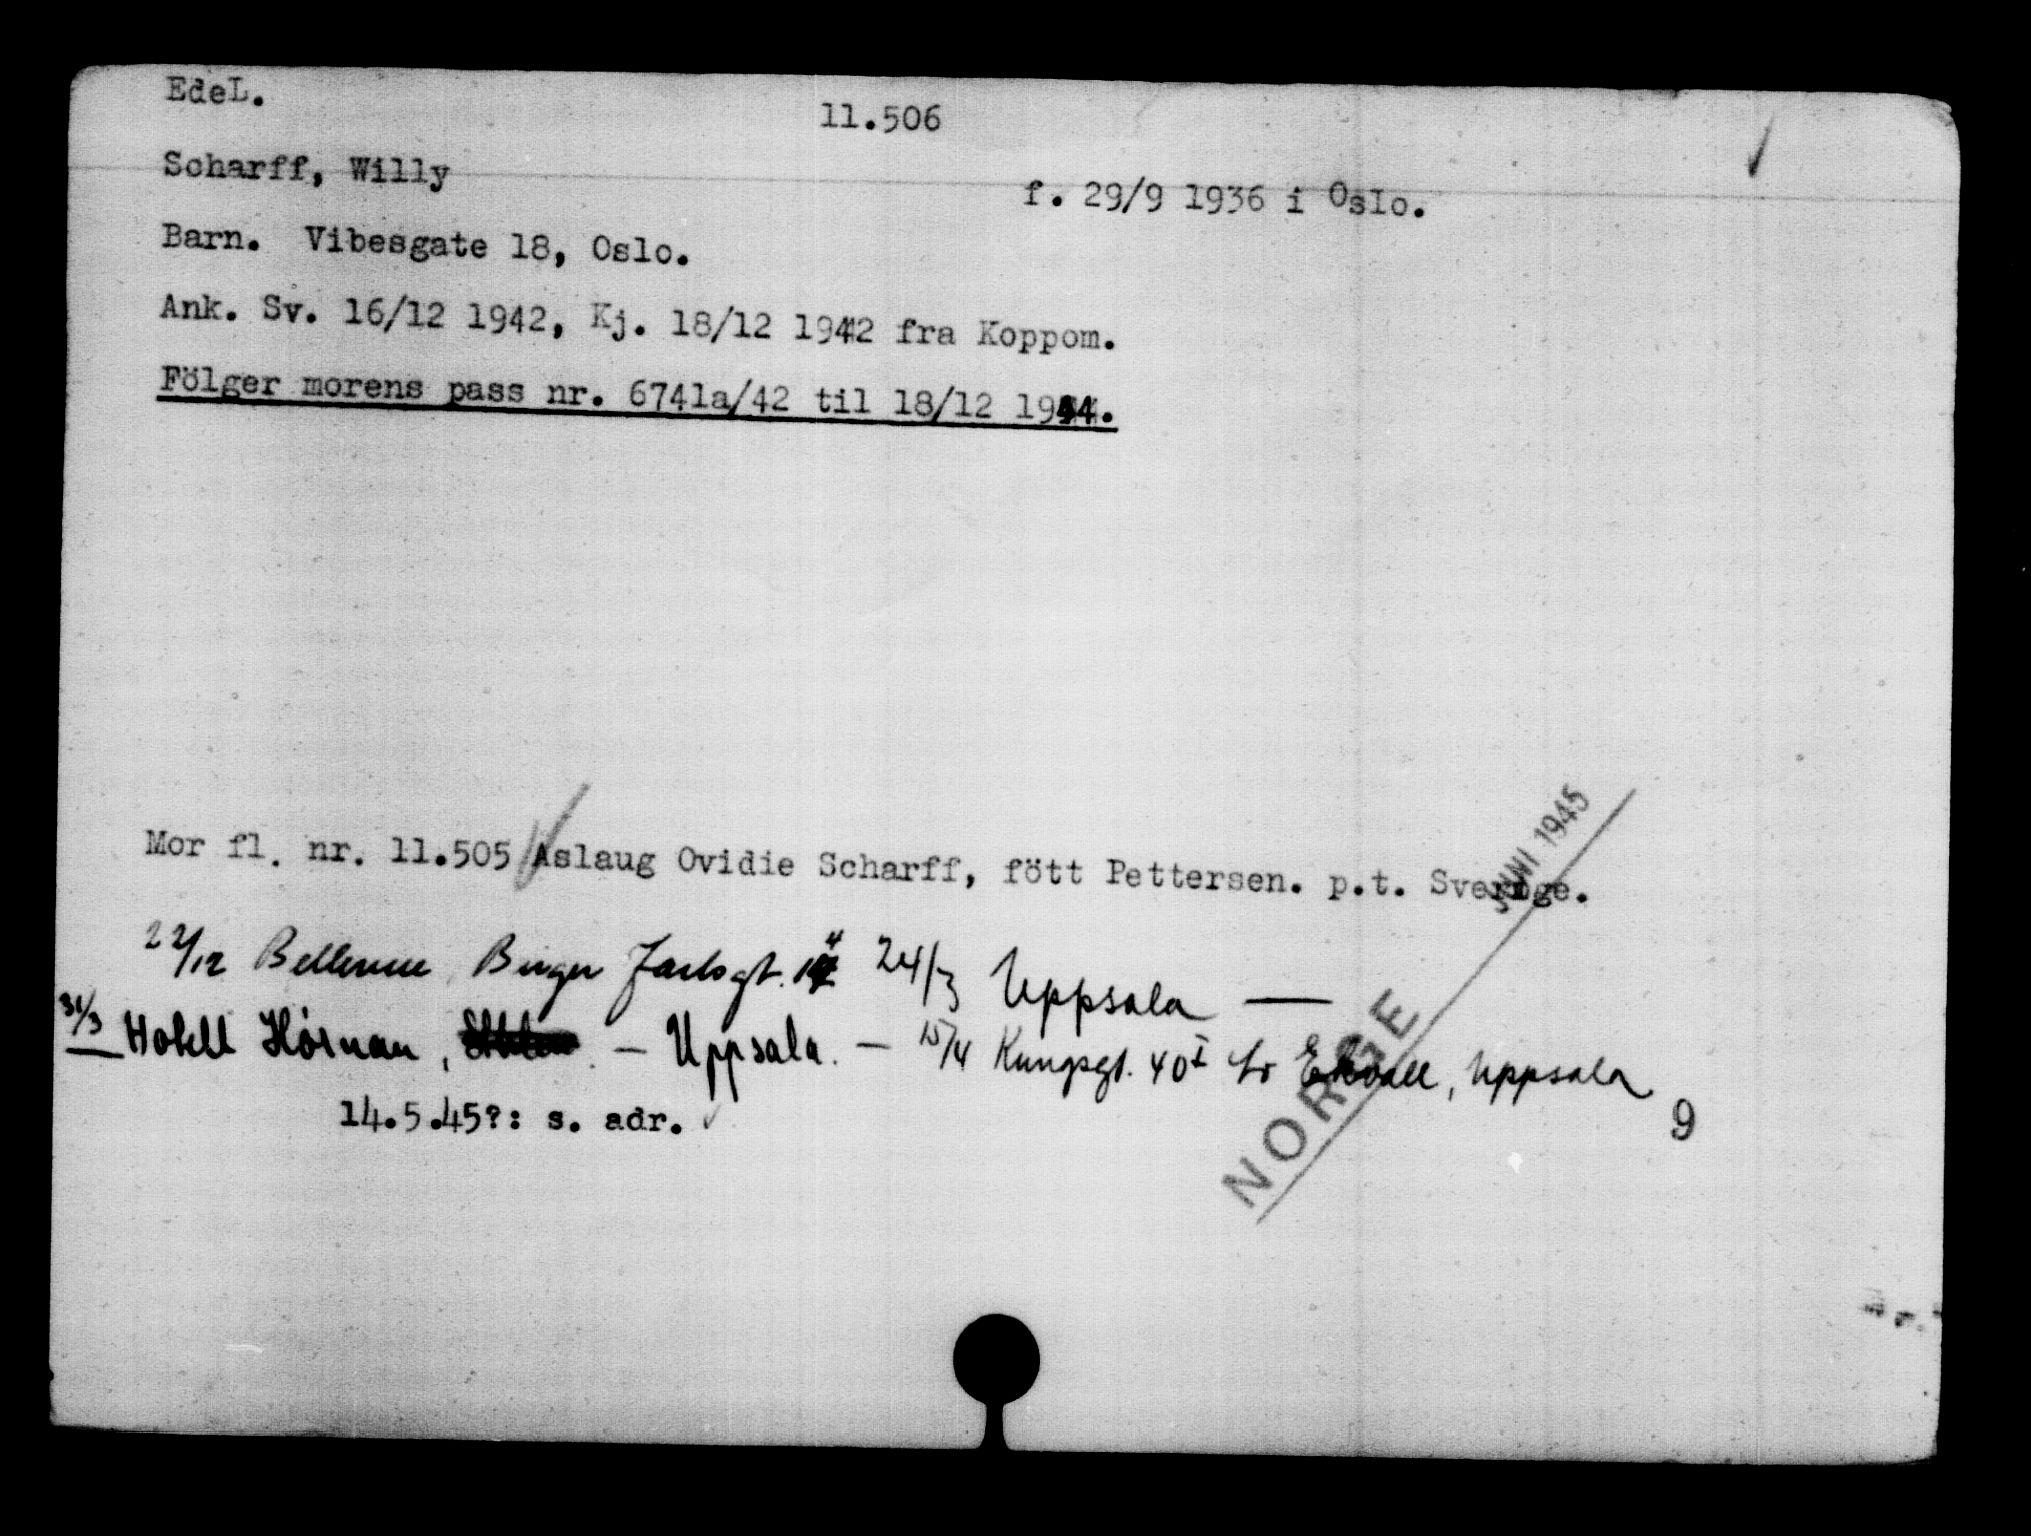 EdeL.
11.506
Scharff, Willy
f. 29/9 1936 i Oslo.
Barn. Vibesgate 18, Oslo.
Ank. Sv. 16/12 1942, Kj. 18/12 1942 fra Koppom.
Fölger morens pass nr. 6741a/42 til 18/12 1944.
JUNI 1945
Mor fl. nr. 11.505 Aslaug Ovidie Scharff, fött Pettersen. p.t. Sverige.
22/12 Bellevue Birger Jarlsgt. 24/3 Uppsala —
31/3 Hotell Hörnan, — Uppsala. — 15/4 Kungsgt. 40 I Ekvall, Uppsala
NORGE
9
14.5.45?: s. adr.